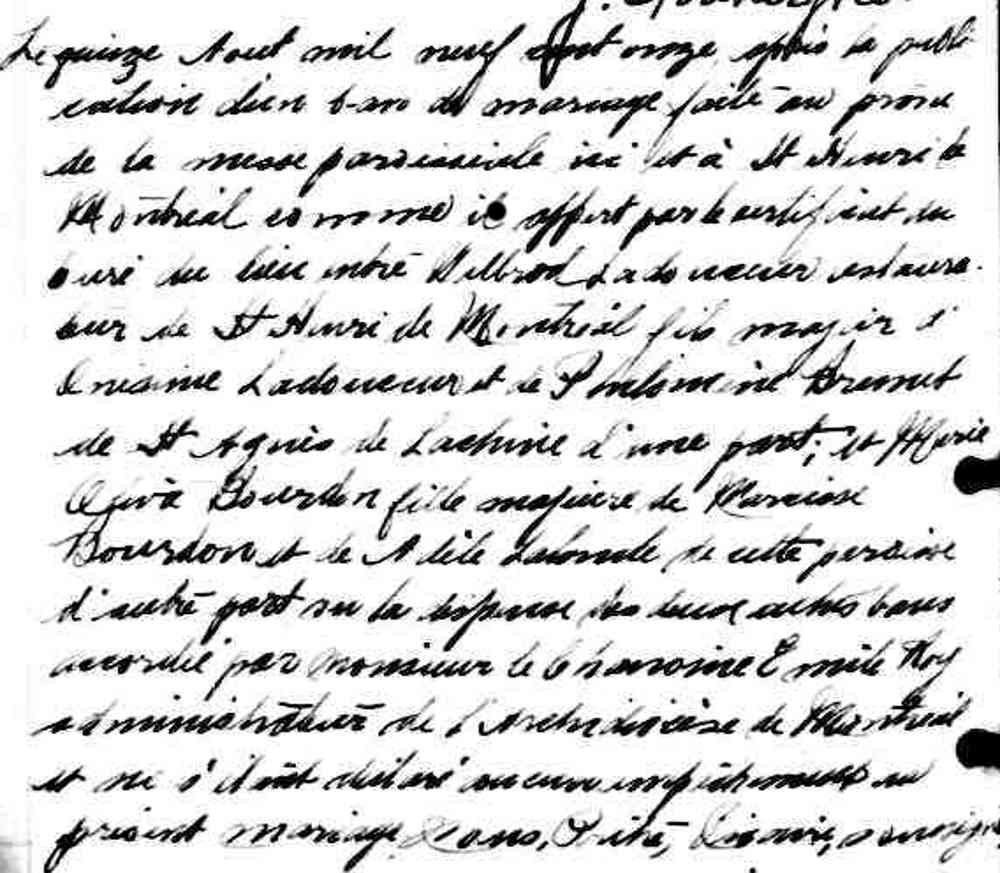 Le quinze Aout mil neuf cent onze, après la publi
cation d'un ban de mariage faite au prone
de la messe paroissiale ici et à St Henri de
Montréal comme il appert par le certificat du
curé du lieu entre Wilbrod Ladouceur restaura-
teur de St Henri de Montréal fils majeur d'
Onésime Ladouceur et de Philomène Brunet
de St Agnès de Lachine d'une part; et Marie
Oliva Bourdon fille majeure de Narcisse
Bourdon et de Adèle Lalonde de cette paroisse
d'autre part vu la dispense des deux autres bans
accordée par monsieur le Chanoine Emile Roy
administrateur de l'Archidiocèse de Montréal
et ne s'étant déclaré aucun empêchement au
présent mariage, Nous, Prêtre, Vicaire, soussigné,